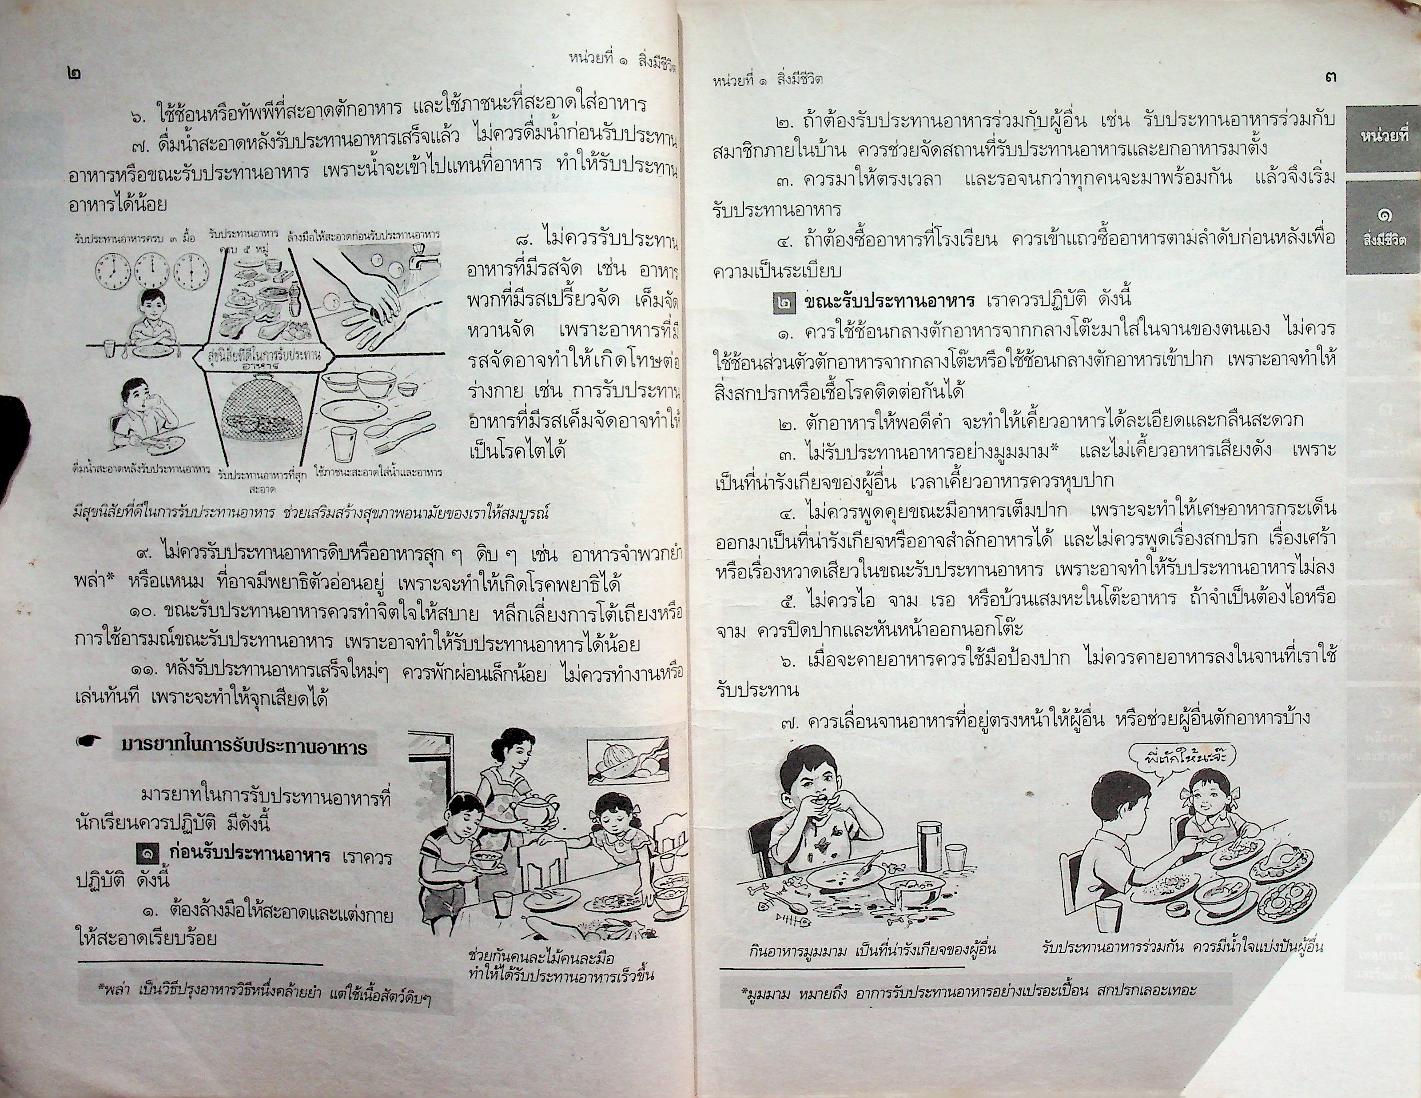 ๒
หน่วยที่ ๑ สิ่งมีชีวิต
๖. ใช้ช้อนหรือทัพพีที่สะอาดตักอาหาร และใช้ภาชนะที่สะอาดใส่อาหาร
๗. ดื่มน้ำสะอาดหลังรับประทานอาหารเสร็จแล้ว ไม่ควรดื่มน้ำก่อนรับประทาน
อาหารหรือขณะรับประทานอาหาร เพราะน้ำจะเข้าไปแทนที่อาหาร ทำให้รับประทาน
อาหารได้น้อย
รับประทานอาหารครบ ๓ มื้อ
รับประทานอาหาร
ครบ ๕ หมู่
ล้างมือให้สะอาดก่อนรับประทานอาหาร
สุขนิสัยที่ดีในการรับประทาน
อาหาร
ดื่มน้ำสะอาดหลังรับประทานอาหาร
รับประทานอาหารที่สุก
สะอาด
ใช้ภาชนะสะอาดใส่น้ำและอาหาร
มีสุขนิสัยที่ดีในการรับประทานอาหาร ช่วยเสริมสร้างสุขภาพอนามัยของเราให้สมบูรณ์
๘. ไม่ควรรับประทาน
อาหารที่มีรสจัด เช่น อาหาร
พวกที่มีรสเปรี้ยวจัด เค็มจัด
หวานจัด เพราะอาหารที่มี
รสจัดอาจทำให้เกิดโทษต่อ
ร่างกาย เช่น การรับประทาน
อาหารที่มีรสเค็มจัดอาจทำให้
เป็นโรคไตได้
๙. ไม่ควรรับประทานอาหารดิบหรืออาหารสุก ๆ ดิบ ๆ เช่น อาหารจำพวกยำ
พล่า* หรือแหนม ที่อาจมีพยาธิตัวอ่อนอยู่ เพราะจะทำให้เกิดโรคพยาธิได้
๑๐. ขณะรับประทานอาหารควรทำจิตใจให้สบาย หลีกเลี่ยงการโต้เถียงหรือ
การใช้อารมณ์ขณะรับประทานอาหาร เพราะอาจทำให้รับประทานอาหารได้น้อย
๑๑. หลังรับประทานอาหารเสร็จใหม่ๆ ควรพักผ่อนเล็กน้อย ไม่ควรทำงานหรือ
เล่นทันที เพราะจะทำให้จุกเสียดได้
มารยาทในการรับประทานอาหาร
มารยาทในการรับประทานอาหารที่
นักเรียนควรปฏิบัติ มีดังนี้
๑ ก่อนรับประทานอาหาร เราควร
ปฏิบัติ ดังนี้
๑. ต้องล้างมือให้สะอาดและแต่งกาย
ให้สะอาดเรียบร้อย
ช่วยกันคนละไม้คนละมือ
ทำให้ได้รับประทานอาหารเร็วขึ้น
*พล่า เป็นวิธีปรุงอาหารวิธีหนึ่งคล้ายยำ แต่ใช้เนื้อสัตว์ดิบๆ
หน่วยที่ ๑ สิ่งมีชีวิต
๓
๒. ถ้าต้องรับประทานอาหารร่วมกับผู้อื่น เช่น รับประทานอาหารร่วมกับ
สมาชิกภายในบ้าน ควรช่วยจัดสถานที่รับประทานอาหารและยกอาหารมาตั้ง
๓. ควรมาให้ตรงเวลา และรอจนกว่าทุกคนจะมาพร้อมกัน แล้วจึงเริ่ม
รับประทานอาหาร
๔. ถ้าต้องซื้ออาหารที่โรงเรียน ควรเข้าแถวซื้ออาหารตามลำดับก่อนหลังเพื่อ
ความเป็นระเบียบ
๒ ขณะรับประทานอาหาร เราควรปฏิบัติ ดังนี้
๑. ควรใช้ช้อนกลางตักอาหารจากกลางโต๊ะมาใส่ในจานของตนเอง ไม่ควร
ใช้ช้อนส่วนตัวตักอาหารจากกลางโต๊ะหรือใช้ช้อนกลางตักอาหารเข้าปาก เพราะอาจทำให้
สิ่งสกปรกหรือเชื้อโรคติดต่อกันได้
๒. ตักอาหารให้พอดีคำ จะทำให้เคี้ยวอาหารได้ละเอียดและกลืนสะดวก
๓. ไม่รับประทานอาหารอย่างมูมมาม* และไม่เคี้ยวอาหารเสียงดัง เพราะ
เป็นที่น่ารังเกียจของผู้อื่น เวลาเคี้ยวอาหารควรหุบปาก
๔. ไม่ควรพูดคุยขณะมีอาหารเต็มปาก เพราะจะทำให้เศษอาหารกระเด็น
ออกมาเป็นที่น่ารังเกียจหรืออาจสำลักอาหารได้ และไม่ควรพูดเรื่องสกปรก เรื่องเศร้า
หรือเรื่องหวาดเสียวในขณะรับประทานอาหาร เพราะอาจทำให้รับประทานอาหารไม่ลง
๕. ไม่ควรไอ จาม เรอ หรือบ้วนเสมหะในโต๊ะอาหาร ถ้าจำเป็นต้องไอหรือ
จาม ควรปิดปากและหันหน้าออกนอกโต๊ะ
๖. เมื่อจะคายอาหารควรใช้มือป้องปาก ไม่ควรคายอาหารลงในจานที่เราใช้
รับประทาน
๗. ควรเลื่อนจานอาหารที่อยู่ตรงหน้าให้ผู้อื่น หรือช่วยผู้อื่นตักอาหารบ้าง
พี่ตักให้นะจ๊ะ
กินอาหารมูมมาม เป็นที่น่ารังเกียจของผู้อื่น
รับประทานอาหารร่วมกัน ควรมีน้ำใจแบ่งปันผู้อื่น
*มูมมาม หมายถึง อาการรับประทานอาหารอย่างเปรอะเปื้อน สกปรกเลอะเทอะ
หน่วยที่
๑
สิ่งมีชีวิต